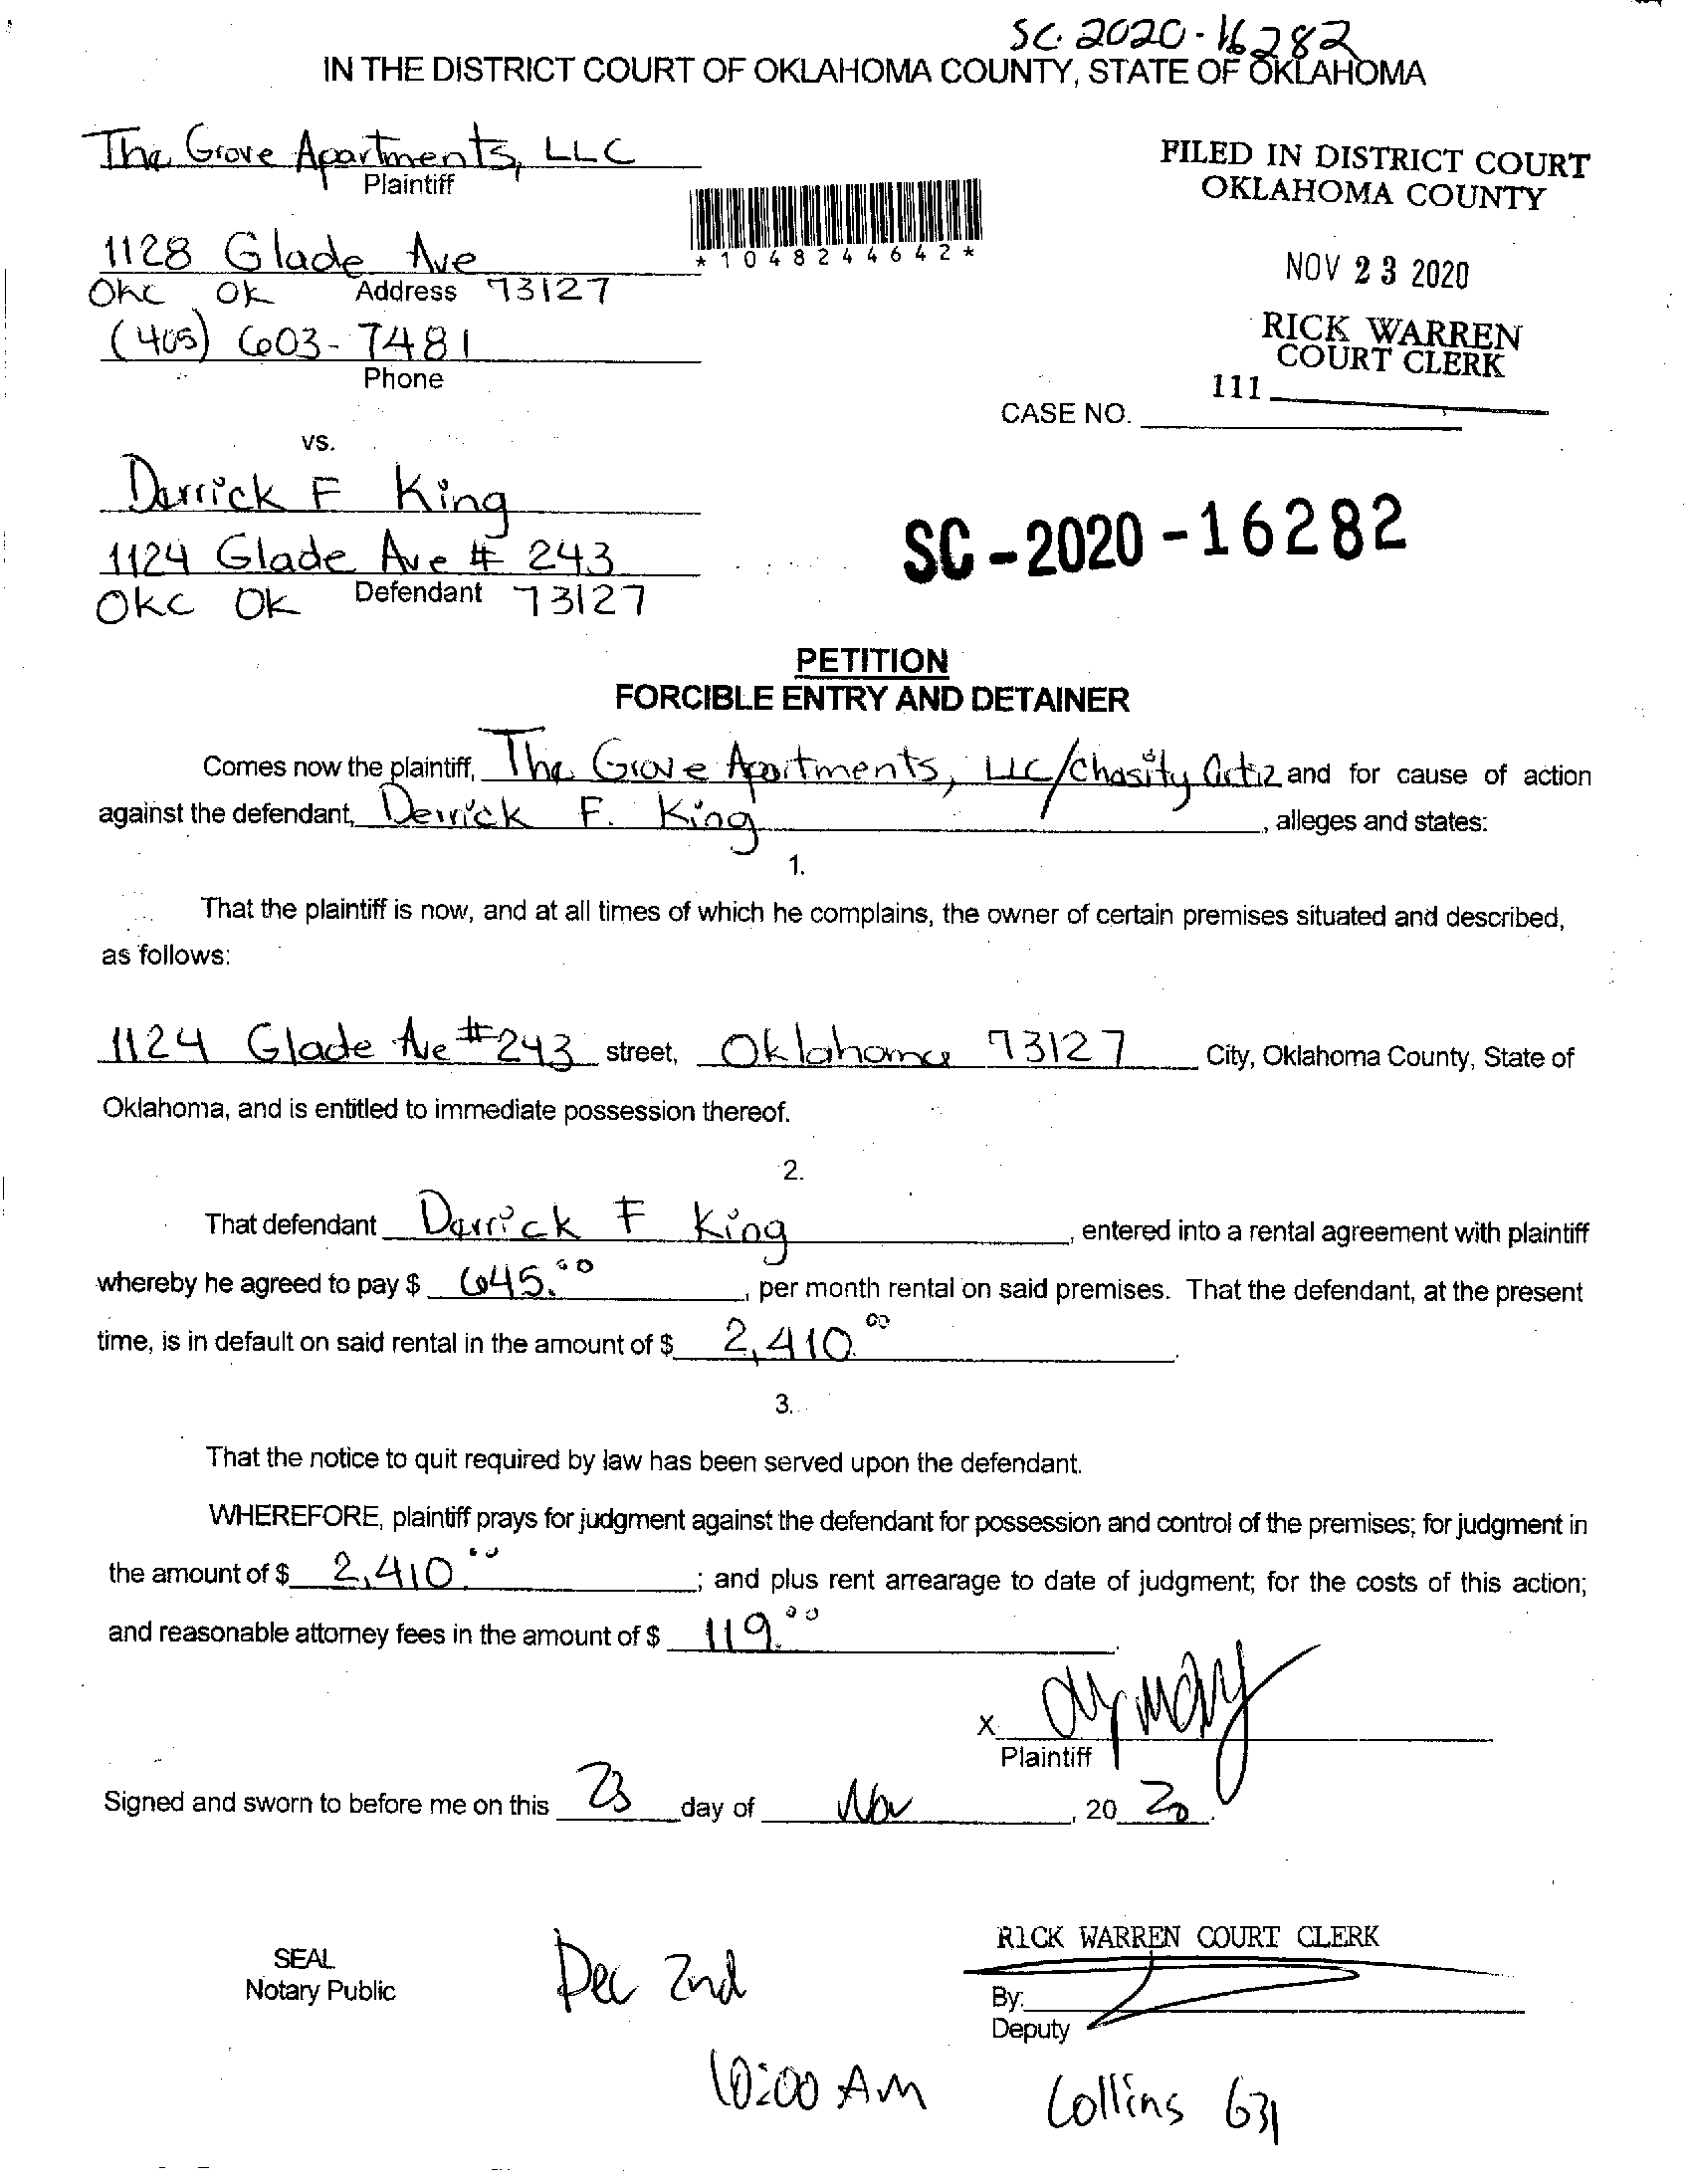 SC-2020-16282
IN THE DISTRICT COURT OF OKLAHOMA COUNTY, STATE OF OKLAHOMA
The Grove Apartments, LLC
Plaintiff
FILED IN DISTRICT COURT
OKLAHOMA COUNTY
*1048244642*
1128 Glade Ave
OKC OK Address 73127
NOV 23 2020
(405) 603-7481
Phone
RICK WARREN
COURT CLERK
111
CASE NO.
vs.
Darrick F King
1124 Glade Ave # 243
OKC OK Defendant 73127
SC-2020-16282
PETITION
FORCIBLE ENTRY AND DETAINER
Comes now the plaintiff, The Grove Apartments, LLC/Chasity and for cause of action
against the defendant, Derrick F. King, alleges and states:
1.
That the plaintiff is now, and at all times of which he complains, the owner of certain premises situated and described,
as follows:
1124 Glade Ave #243 street, Oklahoma 73127 City, Oklahoma County, State of
Oklahoma, and is entitled to immediate possession thereof.
2.
That defendant Darrick F King, entered into a rental agreement with plaintiff
whereby he agreed to pay $ 645.00, per month rental on said premises. That the defendant, at the present
time, is in default on said rental in the amount of $ 2,410.00.
3.
That the notice to quit required by law has been served upon the defendant.
WHEREFORE, plaintiff prays for judgment against the defendant for possession and control of the premises; for judgment in
the amount of $ 2,410.00; and plus rent arrearage to date of judgment; for the costs of this action;
and reasonable attorney fees in the amount of $ 119.00.
X
Plaintiff
Signed and sworn to before me on this 23 day of Nov, 20 20.
RICK WARREN COURT CLERK
SEAL
Notary Public
Dec 2nd
By:
Deputy
10:00 AM
Collins 631